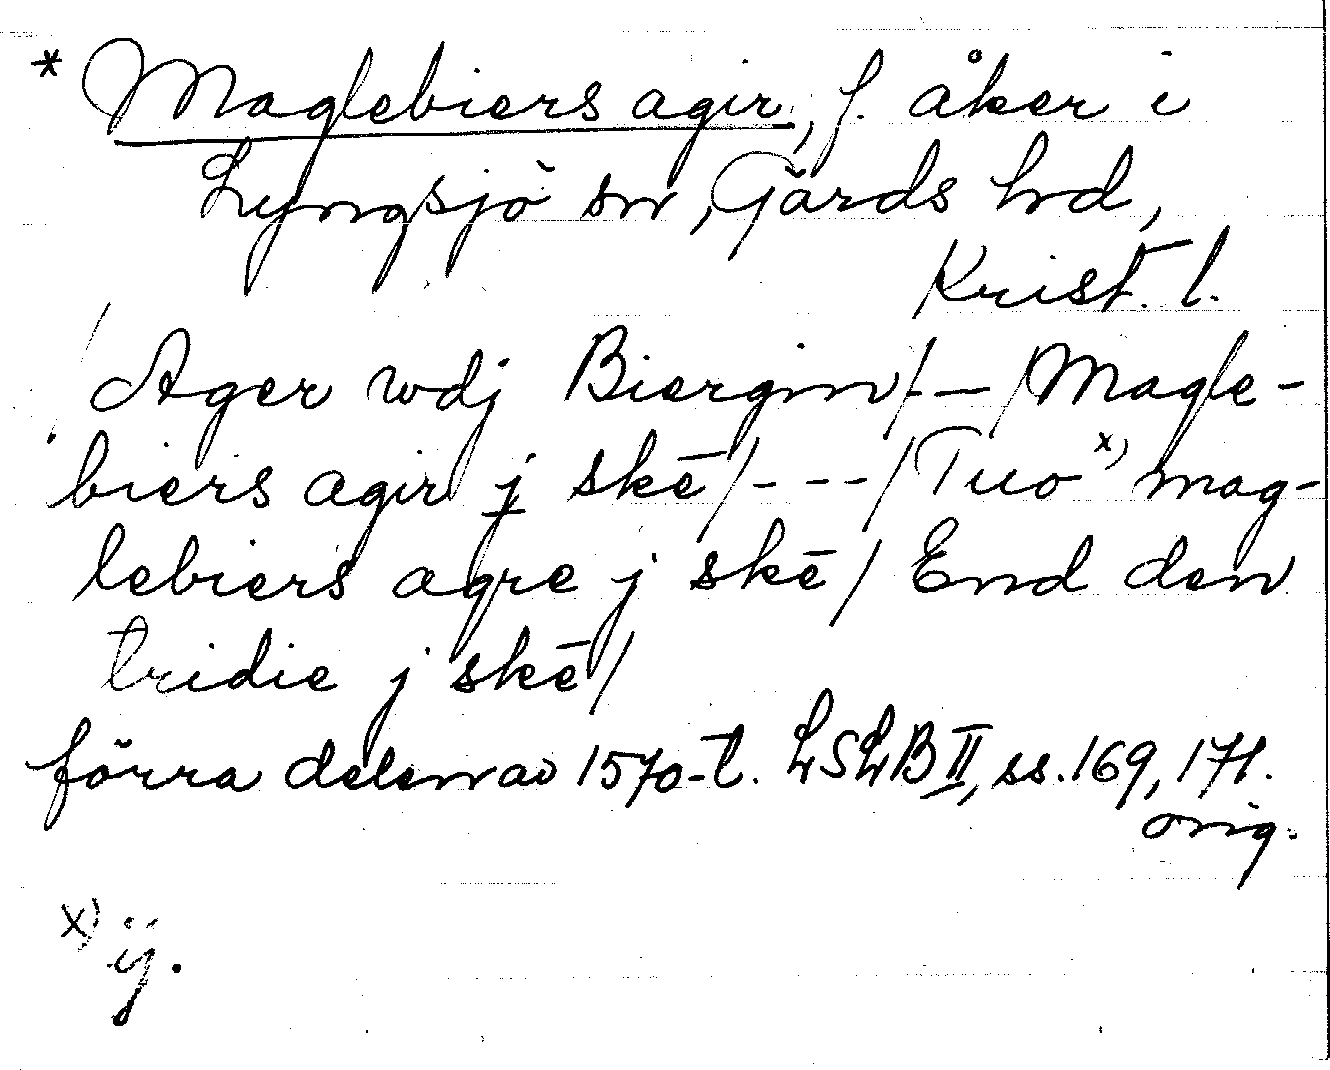 * Maglebiers agir, f. åker i
Lyngsjö sn, Gärds hd,
Krist. l.
Ager wdj Biergin/--/Magle-
biers agir j skē/---/Tuo x) mag-
lebiers agre j skē/ End den
tridie j skē/
förra delen av 1570-t. LSLB II, ss. 169, 171.
orig.
x) ij.